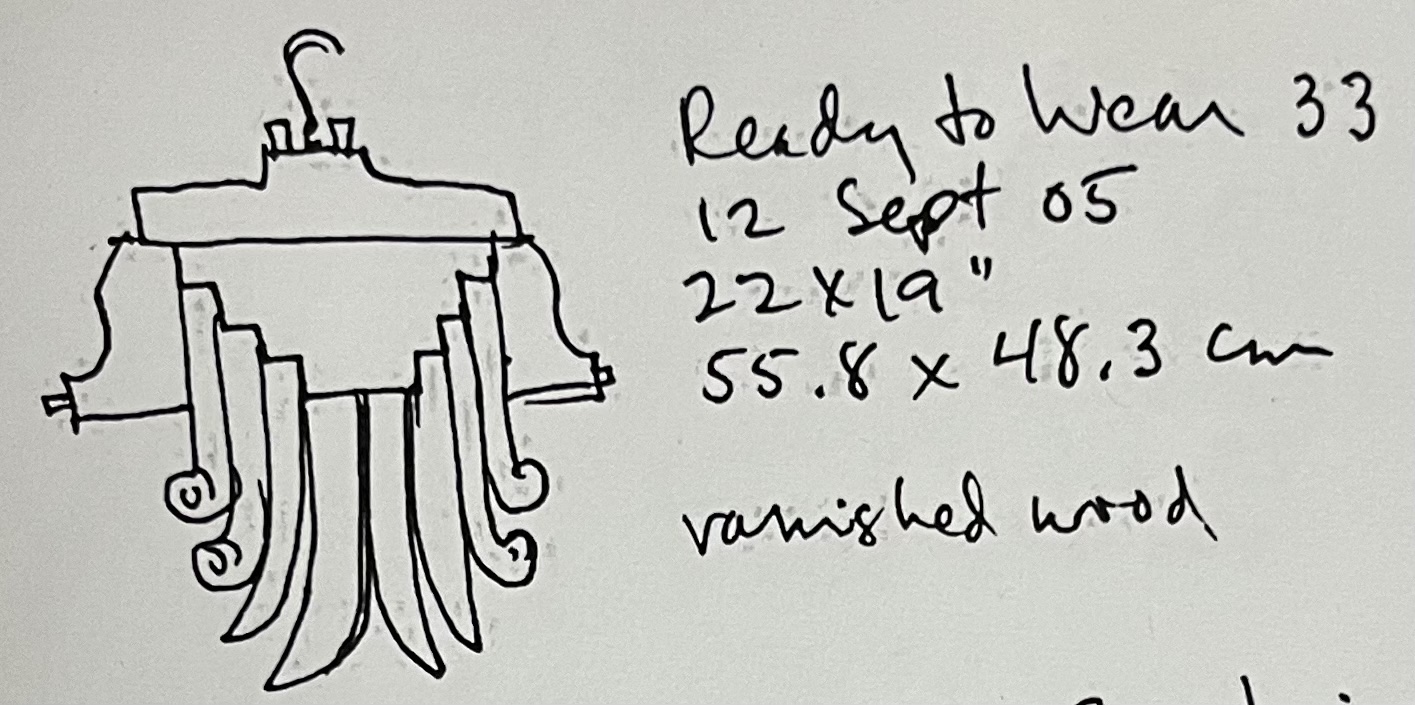 Ready to Wear 33
12 Sept 05
22x19"
55.8 x 48.3 cm
varnished wood